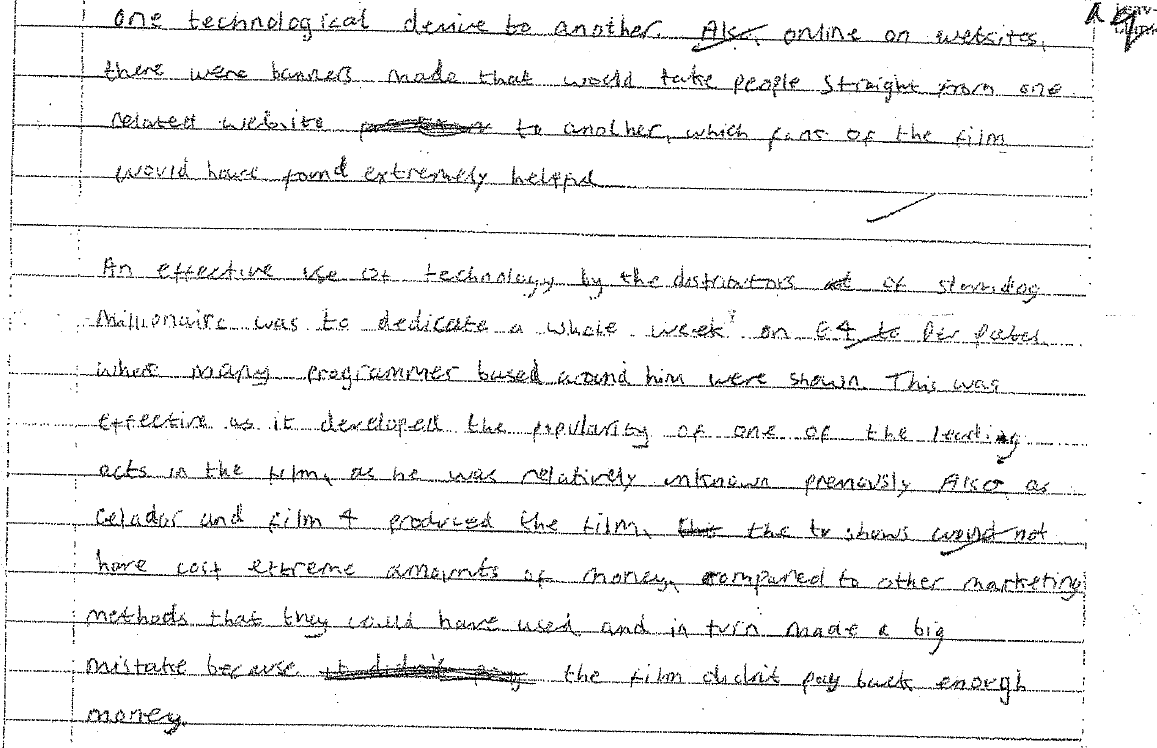 one technological device to another. Also, online on websites,
there were banners made that would take people straight from one
related website to another, which fans of the film
would have found extremely helpful
An effective use of technology by the distributors of slumdog
millionaire was to dedicate a whole week on E4 to Dev Patel,
where many programmes based around him were shown. This was
effective as it developed the popularity of one of the leading
acts in the film, as he was relatively unknown previously Also as
Celador and film 4 produced the film, the tv shows would not
have cost extreme amounts of money, compared to other marketing
methods that they could have used and in turn made a big
mistake because the film didn't pay back enough
money.